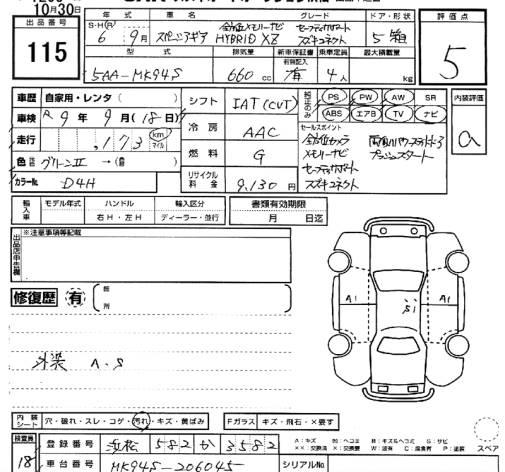 10月30日
出品番号
115
年式
S・H(R)
6 9月
車名
スペーシアギア
グレード
全方位メモリーナビ
HYBRID XZ
セーフティサポート
スズキコネクト
ドア・形状
5 箱
評価点
5
型式
5AA-MK94S
排気量
660 cc
新車保証書
有
乗車定員
4 人
最大積載量
kg
車歴 自家用・レンタ( )
車検 R 9年 9月(18日)
走行 ,173 km マイル
色 グリーンII →( )
カラーNo. D4H
シフト IAT(CVT)
冷房 AAC
燃料 G
リサイクル料金 9,130 円
PS PW AW SR
ABS エアB TV ナビ
セールスポイント
全方位カメラ
メモリーナビ
セーフティサポート
スズキコネクト
プッシュスタート
内装評価
a
輸入車
モデル年式
ハンドル
右H・左H
輸入区分
ディーラー・並行
書類有効期限
月 日迄
※注意事項等記載
修復歴 有
箇所
外装 A・S
A1
S1
A1
内装シート
穴・破れ・スレ・コゲ・汚れ・キズ・黄ばみ
Fガラス キズ・飛石・×要す
検査員
18
登録番号 浜松 582 か 3582
車台番号 MK94S-206045
シリアルNo.
A:キズ
B:キズ&ヘコミ
S:サビ
P:塗装
スペア